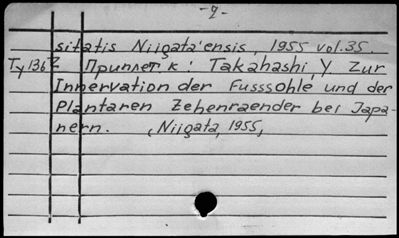 -2-
sitatis Niigata'ensis, 1955 vol.35.
Ty1362 Приплет. к: Takahashi, Y. Zur
Innervation der Fusssohle und der
Plantaren Zehenraender bei Japa-
nern. (Niigata, 1955,